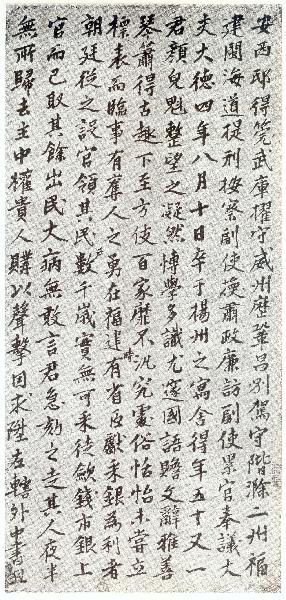 安西邸得筦武庫擢守威州歷鞏昌別駕守階滁二州福
建閩海道提刑按察副使遷肅政廉訪副使累官奉議大
夫大德四年八月十日卒于揚州之寓舍得年五十又一
君顏皃魁整望之凝然博學多識尤邃國語贍文辭雅善
琴簫得古趣下至方伎百家靡不汎究處俗恬怡未嘗立
標表而臨事有奪人之勇在福建有省臣獻采銀為利者
朝廷從之設官領其民戶數千歲實無可采徒歛錢市銀上
官而已取其餘出民大病無敢言君急劾之走其人夜半
無所歸去主中權貴人賕以聲擊因求陞左轄外中書